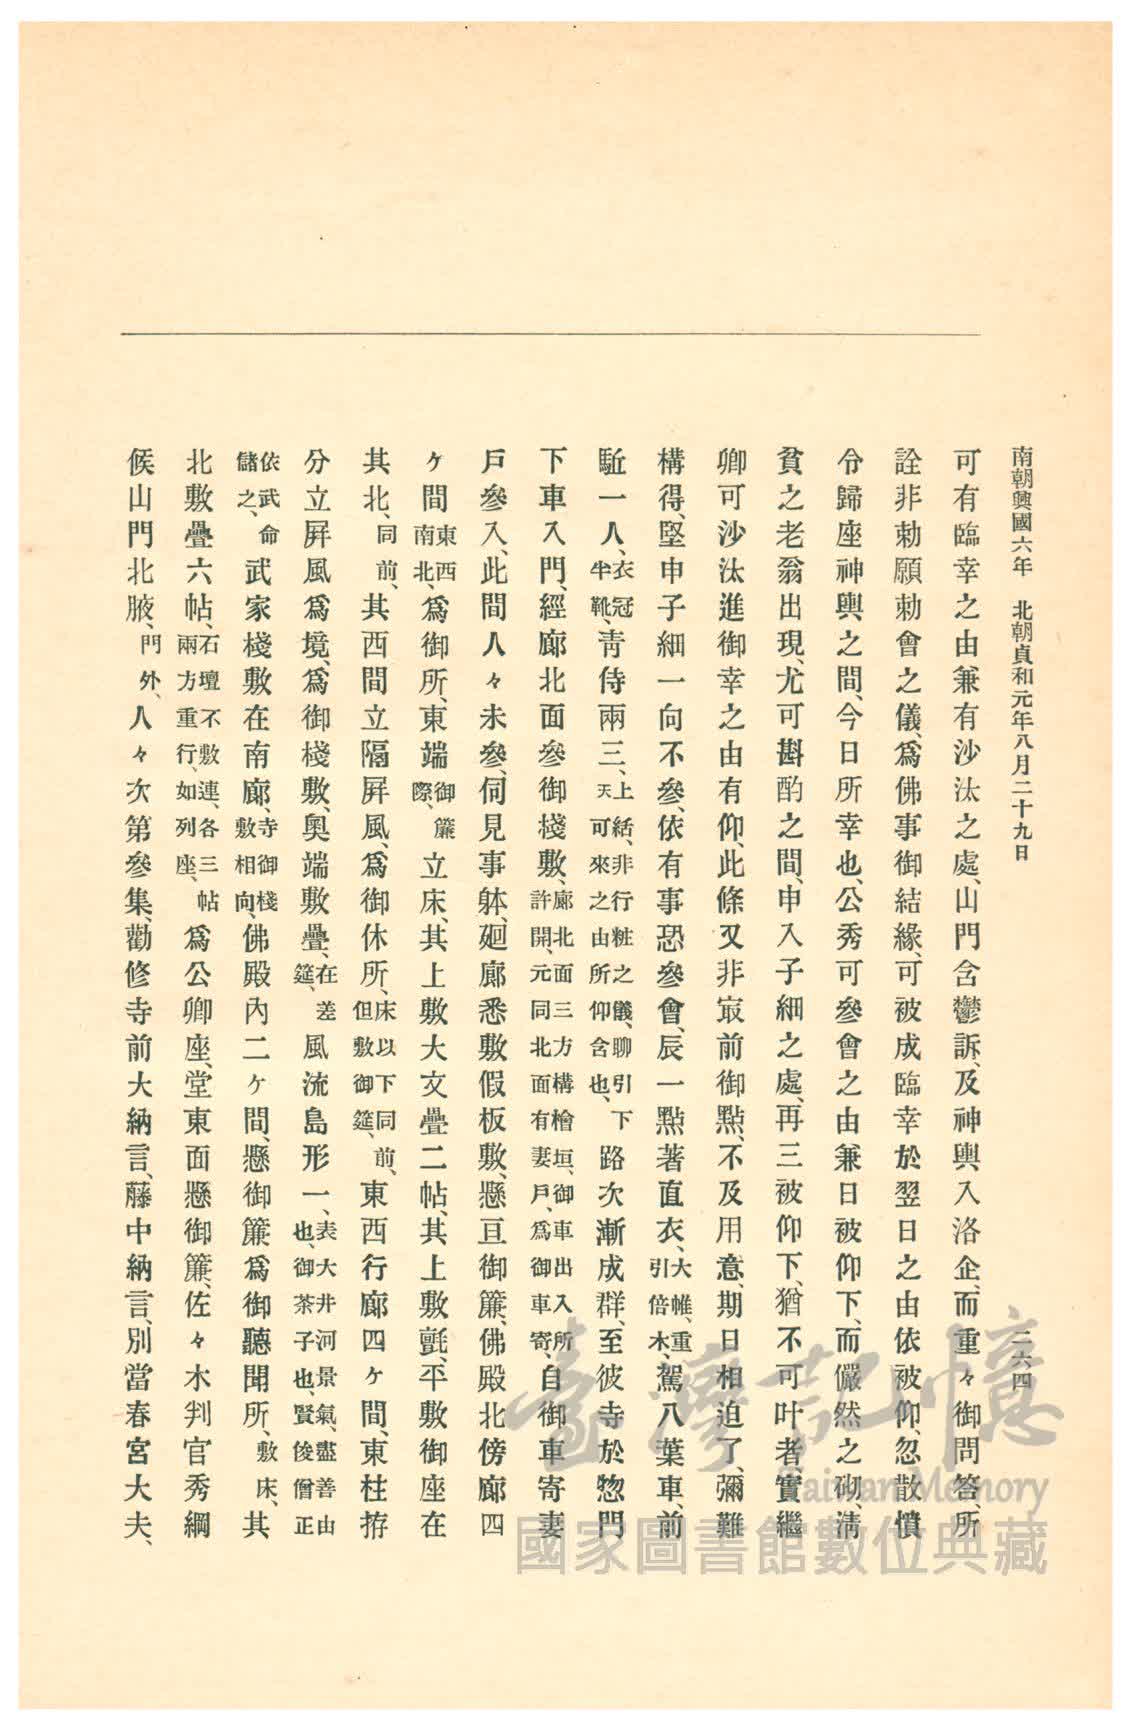 南朝興國六年　北朝貞和元年八月二十九日　二六四
可有臨幸之由兼有沙汰之處、山門含鬱訴、及神輿入洛企、而重々御問答、所
詮非勅願勅會之儀、爲佛事御結緣、可被成臨幸於翌日之由依被仰、忽散憤
令歸座神輿之間、今日所幸也、公秀可參會之由兼日被仰下、而儼然之砌、淸
貧之老翁出現、尤可斟酌之間、申入子細之處、再三被仰下、猶不可叶者實繼
卿可沙汰進御幸之由有仰、此條又非㝡前御點、不及用意、期日相迫了、彌難
構得、堅申子細一向不參、依有事恐參會、辰一點著直衣、大帷、重引倍木、駕八葉車、前
駈一人、衣冠半靴、靑侍兩三、上結、非行粧之儀、聊引下天可來之由所仰含也、路次漸成群、至彼寺於惣門
下車入門、經廊北面參御棧敷、廊北面三方構檜垣、御車出入所許開、元同北面有妻戶、爲御車寄、自御車寄妻
戶參入、此間人々未參、伺見事躰、廻廊悉敷假板敷、懸亘御簾、佛殿北傍廊四
ヶ間東西南北、爲御所、東端御簾際、立床、其上敷大文疊二帖、其上敷氈、平敷御座在
其北、同前、其西間立隔屛風、爲御休所、床以下同前、但敷御筵、東西行廊四ヶ間、東柱拵
分立屛風爲境、爲御棧敷、奧端敷疊、在差筵、風流島形一、表大井河景氣、盡善由也、御茶子也、賢俊僧正
依武命儲之、武家棧敷在南廊、寺御棧敷相向、佛殿內二ヶ間、懸御簾爲御聽聞所、敷床、其
北敷疊六帖、石壇不敷連、各三帖兩方重行、如列座、爲公卿座、堂東面懸御簾、佐々木判官秀綱
候山門北腋、門外、人々次第參集、勸修寺前大納言、藤中納言、別當春宮大夫、
臺灣記憶
Taiwan Memory
國家圖書館數位典藏